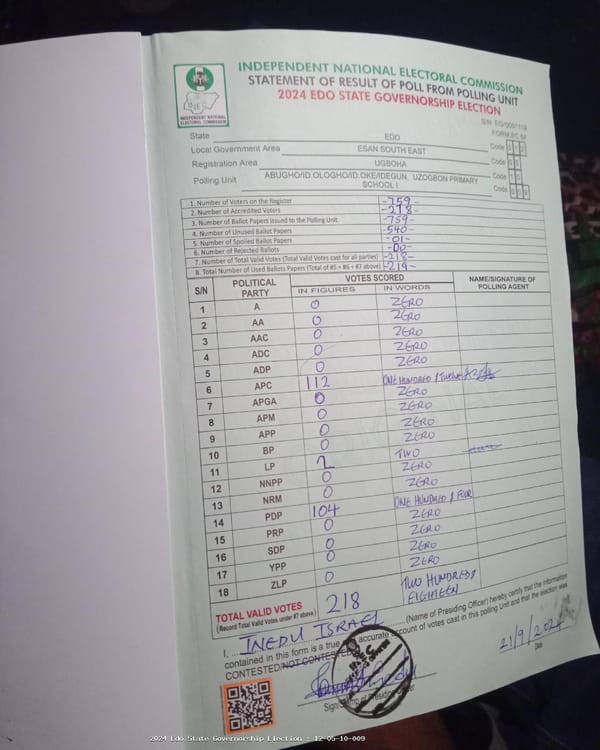 INDEPENDENT NATIONAL ELECTORAL COMMISSION
STATEMENT OF RESULT OF POLL FROM POLLING UNIT
2024 EDO STATE GOVERNORSHIP ELECTION
INDEPENDENT NATIONAL ELECTORAL COMMISSION
FORM EC 8A
State EDO Code
Local Government Area ESAN SOUTH EAST Code
Registration Area UGBOHA Code
Polling Unit ABUGHO/ID.OLOGHO/ID.OKE/IDEGUN, UZOGBON PRIMARY SCHOOL I Code
1. Number of Voters on the Register -759-
2. Number of Accredited Voters -218-
3. Number of Ballot Papers Issued to the Polling Unit -759-
4. Number of Unused Ballot Papers -540-
5. Number of Spoiled Ballot Papers -01-
6. Number of Rejected Ballots -00-
7. Number of Total Valid Votes (Total Valid Votes cast for all parties) -218-
8. Total Number of Used Ballots Papers (Total of #5 + #6 + #7 above) -219-
S/N POLITICAL PARTY VOTES SCORED NAME/SIGNATURE OF POLLING AGENT
IN FIGURES IN WORDS
1 A 0 ZERO
2 AA 0 ZERO
3 AAC 0 ZERO
4 ADC 0 ZERO
5 ADP 0 ZERO
6 APC 112 ONE HUNDRED / TWELVE
7 APGA 0 ZERO
8 APM 0 ZERO
9 APP 0 ZERO
10 BP 0 ZERO
11 LP 2 TWO
12 NNPP 0 ZERO
13 NRM 0 ZERO
14 PDP 104 ONE HUNDRED / FOUR
15 PRP 0 ZERO
16 SDP 0 ZERO
17 YPP 0 ZERO
18 ZLP 0 ZERO
TOTAL VALID VOTES 218 TWO HUNDRED & EIGHTEEN
(Record Total Valid Votes under #7 above)
I, INEDU ISRAEL (Name of Presiding Officer) hereby certify that the information
contained in this form is a true accurate account of votes cast in this polling Unit and that the election was
CONTESTED/NOT CONTESTED
21/9/2024
Date
2024 Edo State Governorship Election : 12-05-10-009